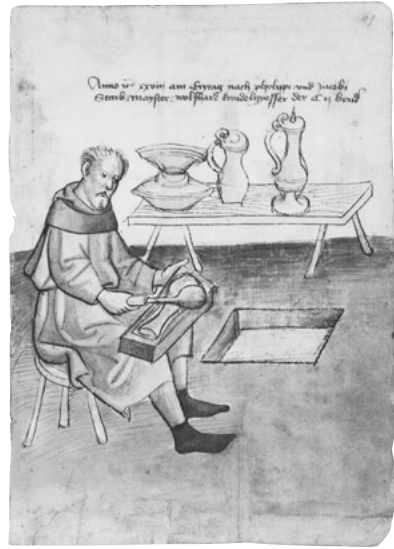 Anno xxviii am Erytag nach phylippi vnd Jacobi
Starb Mayster wolfhard kandelgyesser der C ij brud